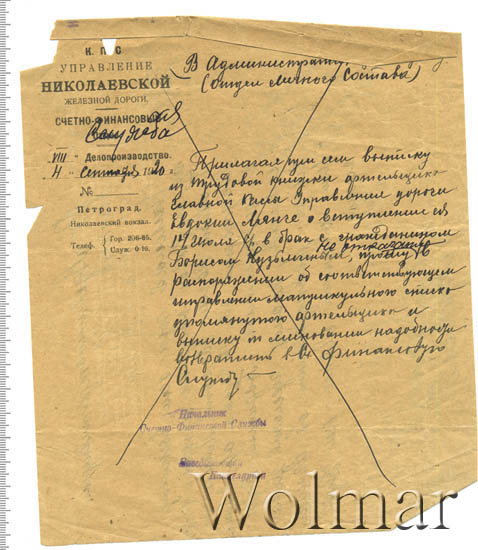 К. П С
УПРАВЛЕНИЕ
НИКОЛАЕВСКОЙ
ЖЕЛЕЗНОЙ ДОРОГИ.
СЧЕТНО-ФИНАНСОВЫЙ
VIII Делопроизводство.
4 сентября 1920 г.
№
Петроград.
Николаевский вокзал.
Телеф. Гор. 206-85.
Служ. 0-16.
В Администрат.
(Отдел Личного Состава)
Прилагая при сем выписку
из трудовой книжки артельщика
Главной Кассы Управления дороги
Евдокии о вступлении ея
Июля в брак с гражданином
Борисом Кузьминым, прошу не отказать
распоряжении об соответствующем
исправлении матрикульного списка
упомянутого артельщика и
выписку по миновании надобности
возвратить в Финансовую
Службу
Начальник
Счетно-Финансовой Службы
Wolmar